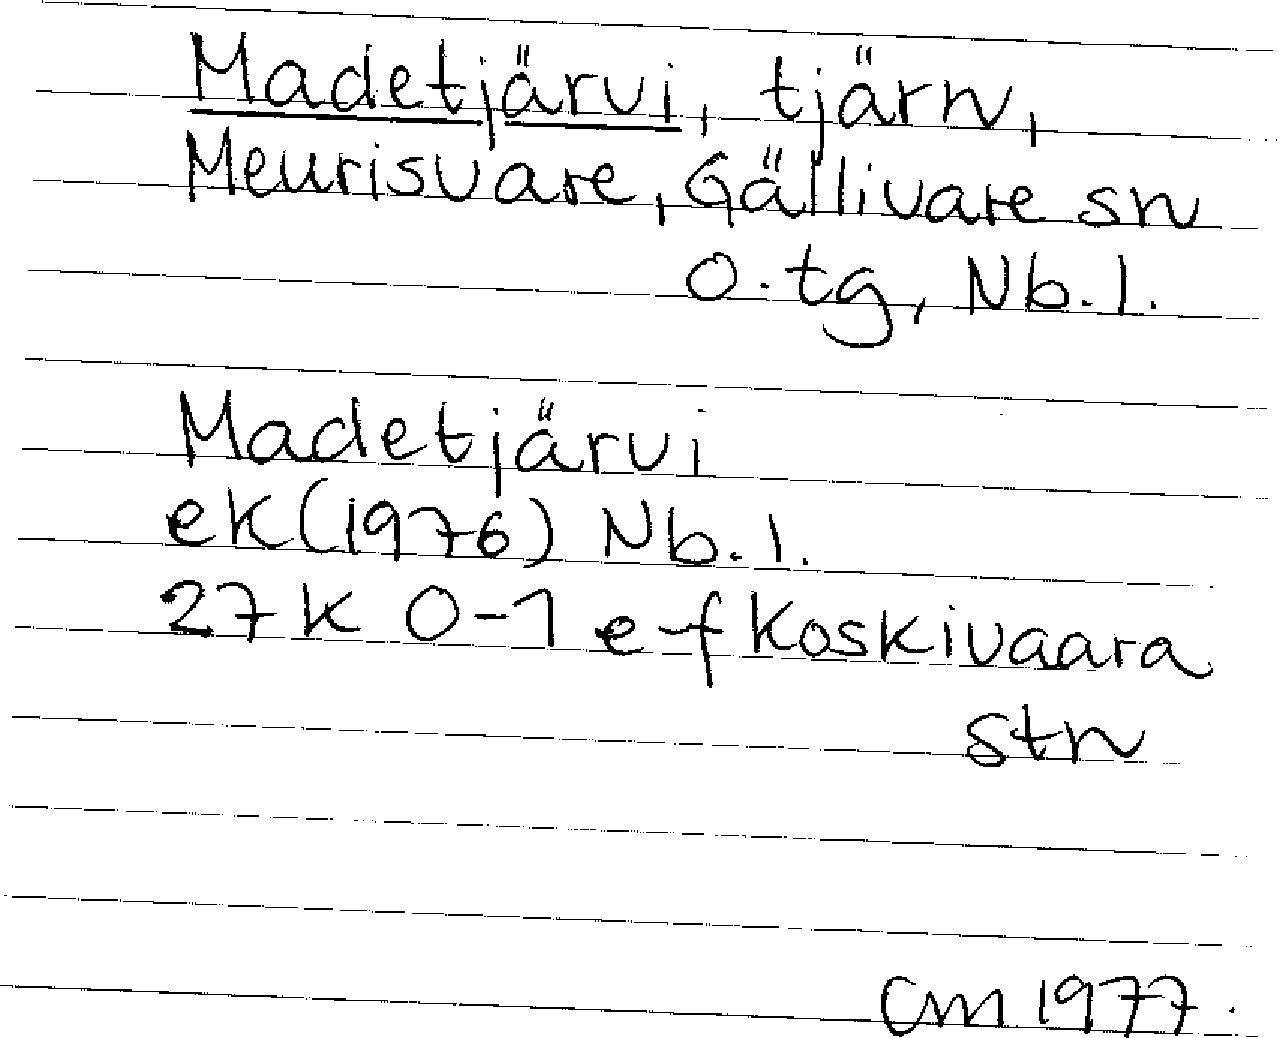 Madetjärvi, tjärn,
Meurisvare, Gällivare sn
o. tg, Nb. l.
Madetjärvi
ek (1976) Nb. l.
27 K 0-1 e-f Koskivaara
stn
CM 1977.